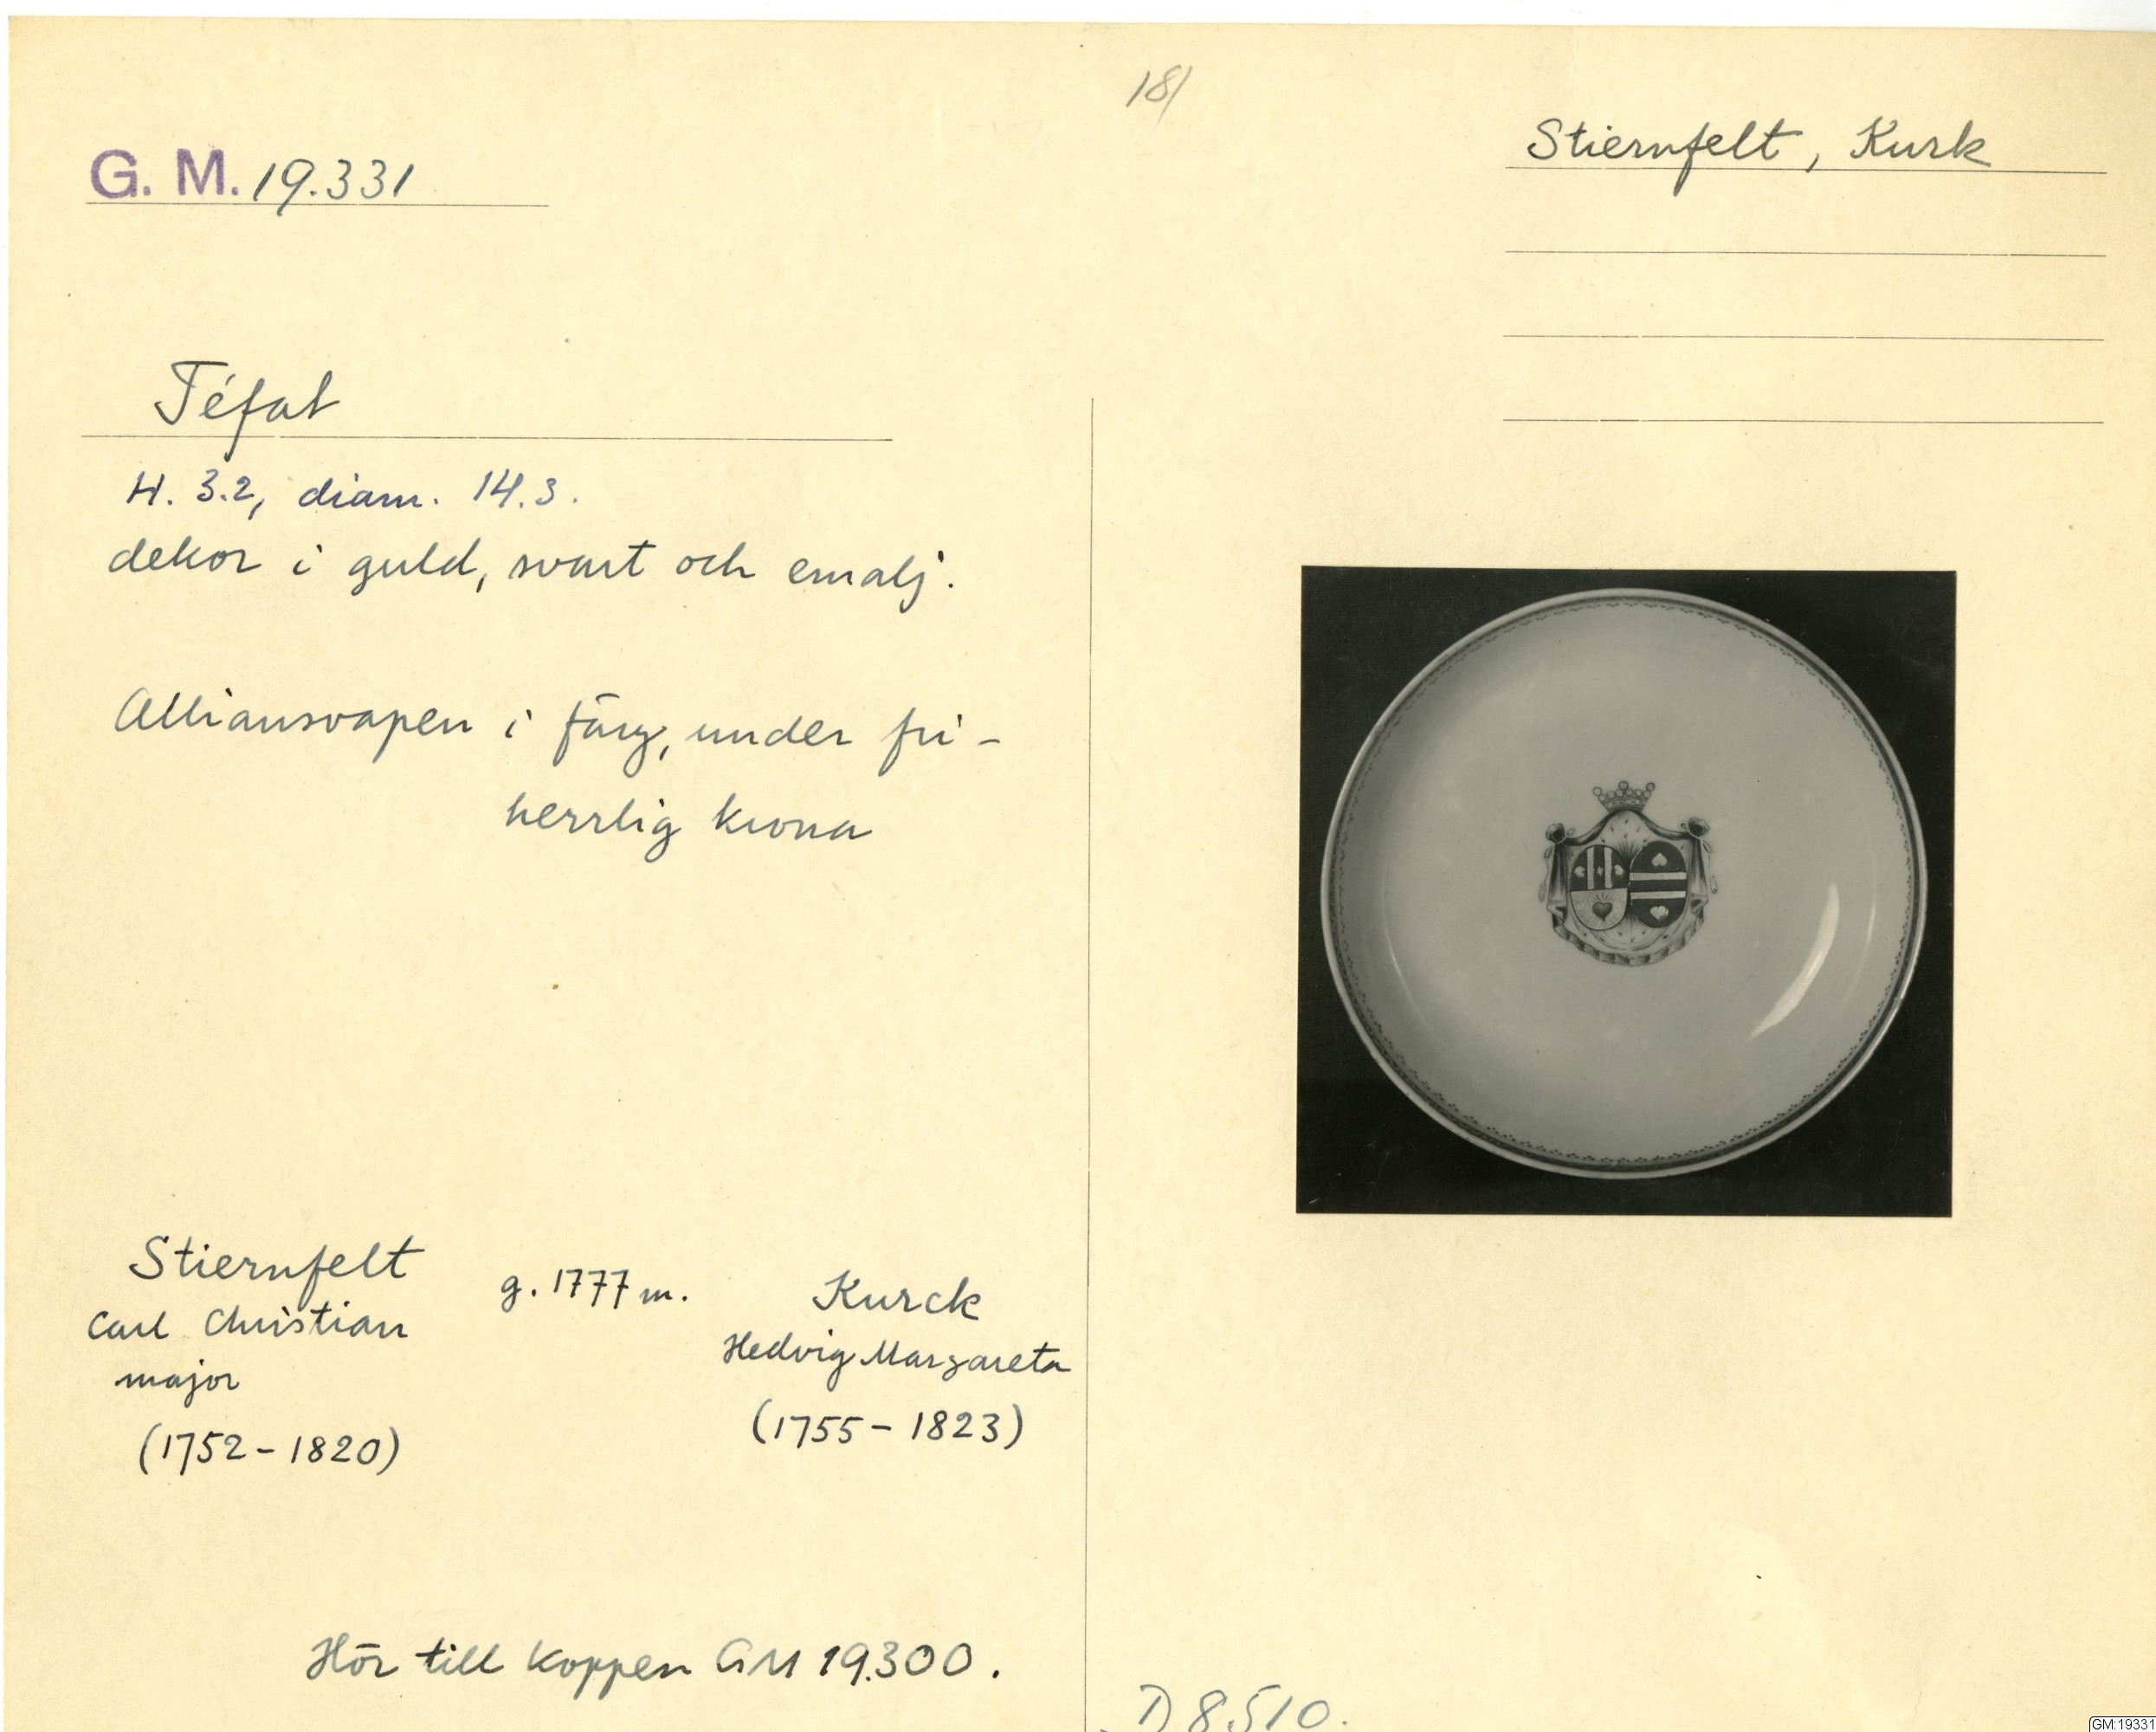 18/
G. M. 19.331
Stiernfelt, Kurk
Téfat
H. 3.2, diam. 14.3.
dekor i guld, svart och emalj.
Alliansvapen i färg, under fri-
herrlig krona
Stiernfelt
Carl Christian
major
(1752-1820)
g. 1777 m.
Kurck
Hedvig Margareta
(1755-1823)
Hör till koppen GM 19.300.
D 8510.
GM:19331